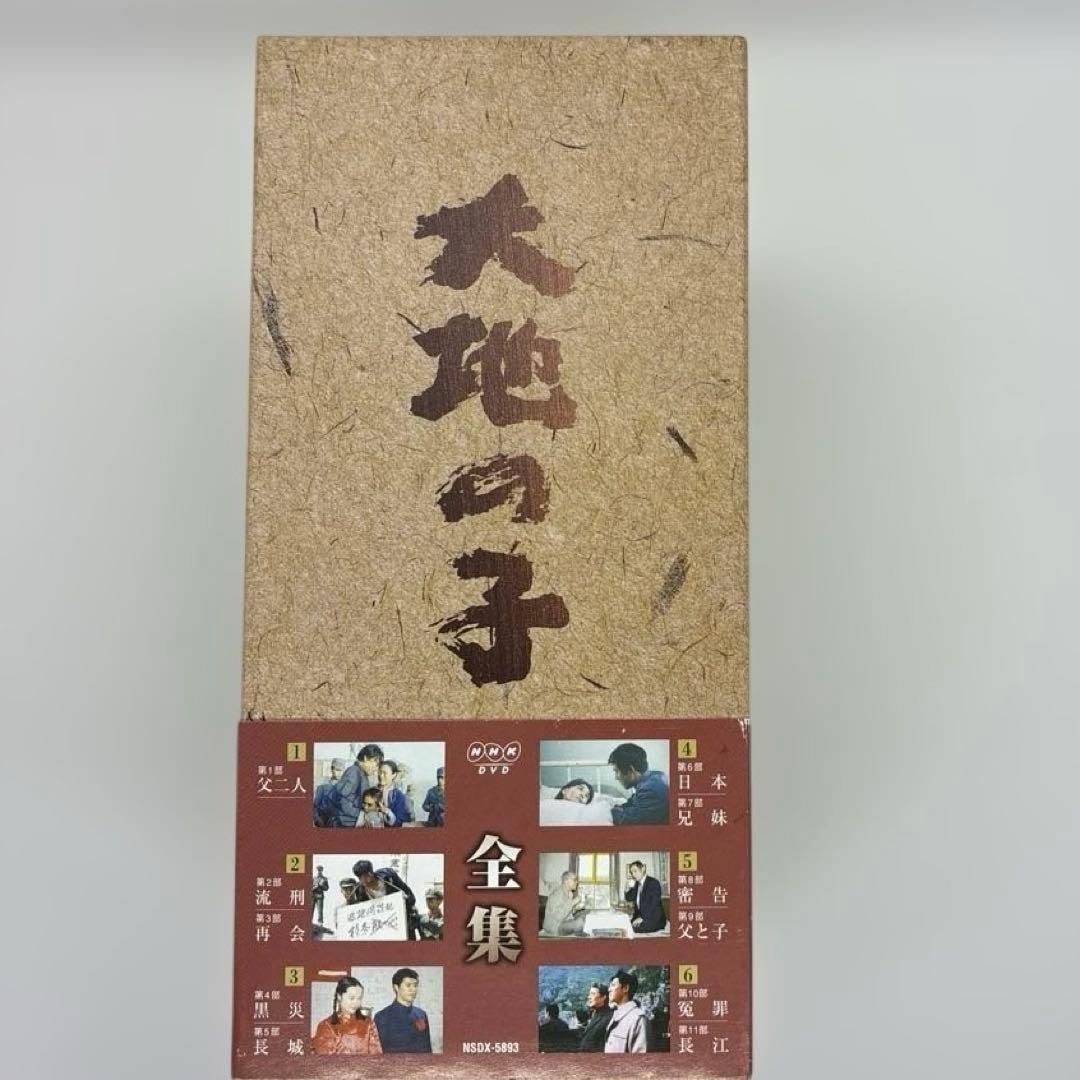 大地の子
NHK
DVD
全集
1
第1部
父二人
2
第2部
流刑
第3部
再会
3
第4部
黒災
第5部
長城
4
第6部
日本
第7部
兄妹
5
第8部
密告
第9部
父と子
6
第10部
冤罪
第11部
長江
NSDX-5893